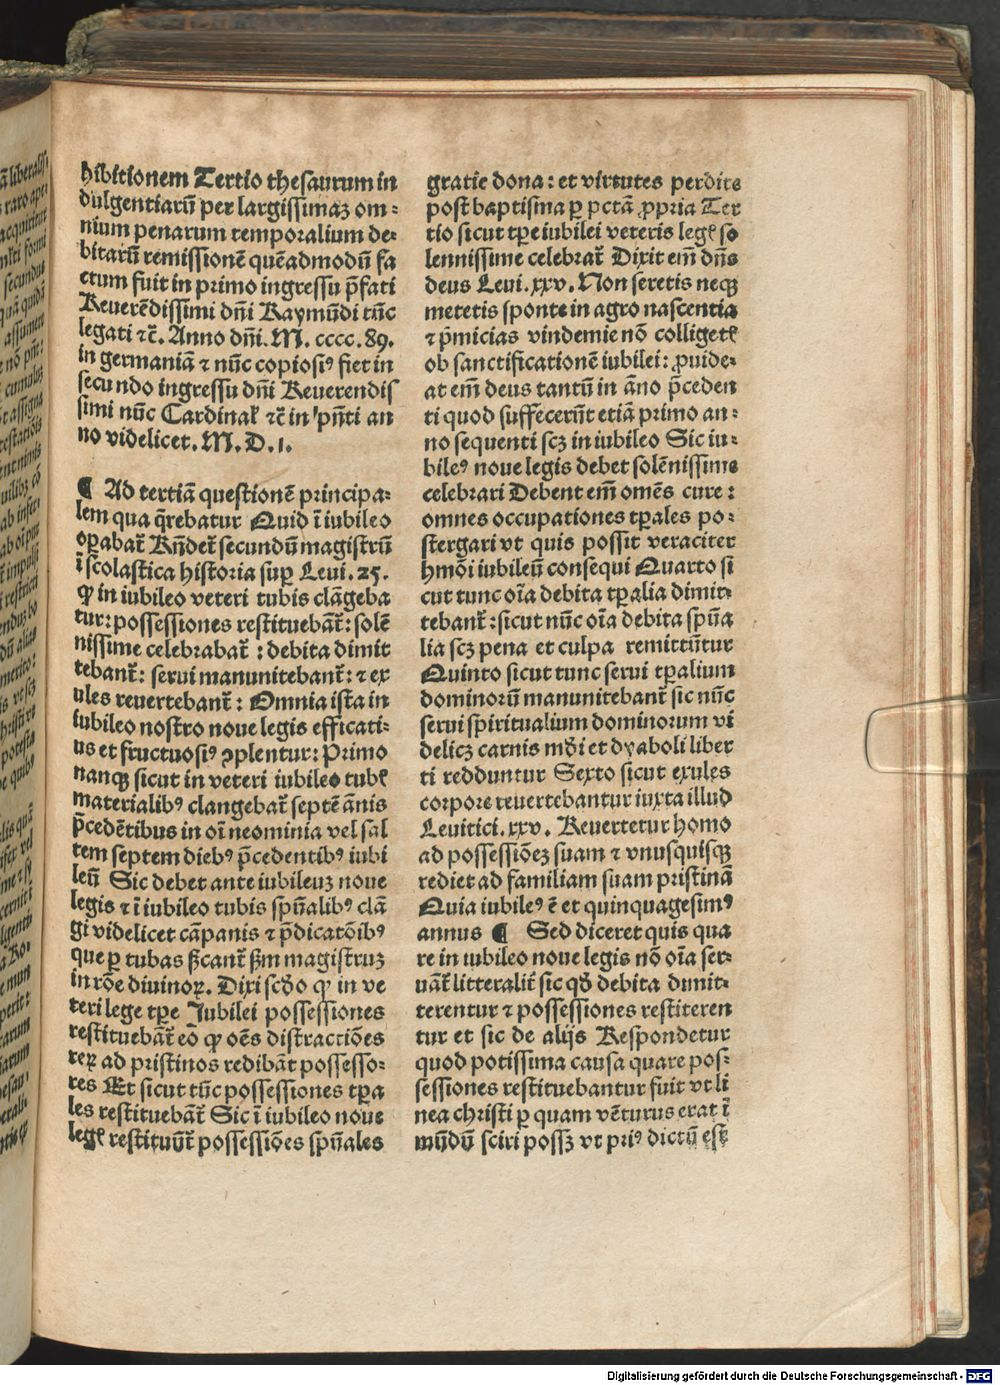 hibitionem Tertio thesaurum in
dulgentiarū per largissimaꝫ om⸗
nium penarum temporalium de⸗
bitarū remissionē quēadmodū fa
ctum fuit in primo ingressu p̄fati
Reuerēdissimi dn̄i Raymūdi tūc
legati ⁊c̄. Anno dn̄i. M. cccc. 89.
in germaniā ⁊ nūc copiosiꝰ fiet in
secundo ingressu dn̄i Reuerendis
simi nūc Cardinal̓ ⁊c̄ in p̄n̄ti an
no videlicet. M. D. I.
¶ Ad tertiā questionē principa⸗
lem qua q̄rebatur Quid ī iubileo
oꝑabat̄ Rn̄det̄ secundū magistrū
ī scolastica historia suꝑ Leui. 25.
ꝙ in iubileo veteri tubis clāgeba
tur: possessiones restituebāt̄: solē
nissime celebrabat̄ : debita dimit
tebant̄: serui manunitebant̄: ⁊ ex
ules reuertebant̄ : Omnia ista in
iubileo nostro noue legis efficati⸗
us et fructuosiꝰ ꝯplentur: Primo
nanqꝫ sicut in veteri iubileo tubꝭ
materialibꝰ clangebat̄ septē ānis
p̄cedētibus in oī neominia vel sal
tem septem diebꝰ p̄cedentibꝰ iubi
leū Sic debet ante iubileuꝫ noue
legis ⁊ ī iubileo tubis spūalibꝰ clā
gi videlicet cāpanis ⁊ p̄dicatōibꝰ
que ꝑ tubas ßcant̄ ßm magistruꝫ
in rōe diuinoꝝ. Dixi scd̓o ꝙ in ve
teri lege tꝑe Iubilei possessiones
restituebāt̄ eo ꝙ oēs distractiōes
reꝝ ad pristinos redibāt possesso⸗
res Et sicut tūc possessiones tꝑa
les restituebāt̄ Sic ī iubileo noue
legꝭ restituūt̄ possessiōes spūales
gratie dona: et virtutes perdite
post baptisma ꝑ pctā ꝓpria Ter
tio sicut tꝑe iubilei veteris legꝭ so
lennissime celebrat̄ Dixit em̄ dn̄s
deus Leui. xxv. Non seretis neqꝫ
metetis sponte in agro nascentia
⁊ p̄micias vindemie nō colligetꝭ
ob sanctificationē iubilei: ꝓuide⸗
at em̄ deus tantū in āno p̄ceden
ti quod suffecerūt etiā primo an⸗
no sequenti scꝫ in iubileo Sic iu⸗
bileꝰ noue legis debet solēnissime
celebrari Debent em̄ omēs cure :
omnes occupationes tꝑales po⸗
stergari vt quis possit veraciter
hmōi iubileū consequi Quarto si
cut tunc oīa debita tꝑalia dimit⸗
tebant̄ : sicut nūc oīa debita spūa
lia scꝫ pena et culpa remittūtur
Quinto sicut tunc serui tꝑalium
dominorū manunitebant̄ sic nūc
serui spiritualium dominorum vi
delicꝫ carnis mūdi et dyaboli liber
ti redduntur Sexto sicut exules
corpore reuertebantur iuxta illud
Leuitici. xxv. Reuertetur homo
ad possessiōeꝫ suam ⁊ vnusquisqꝫ
rediet ad familiam suam pristinā
Quia iubileꝰ ē et quinquagesimꝰ
annus ¶ Sed diceret quis qua
re in iubileo noue legis nō oīa ser⸗
uāt̄ litteralit̄ sic qd̓ debita dimit⸗
terentur ⁊ possessiones restiteren
tur et sic de alijs Respondetur
quod potissima causa quare pos⸗
sessiones restituebantur fuit vt li
nea christi ꝑ quam vēturus erat ī
mūdū sciri possꝫ vt priꝰ dictū est
Digitalisierung gefördert durch die Deutsche Forschungsgemeinschaft - DFG